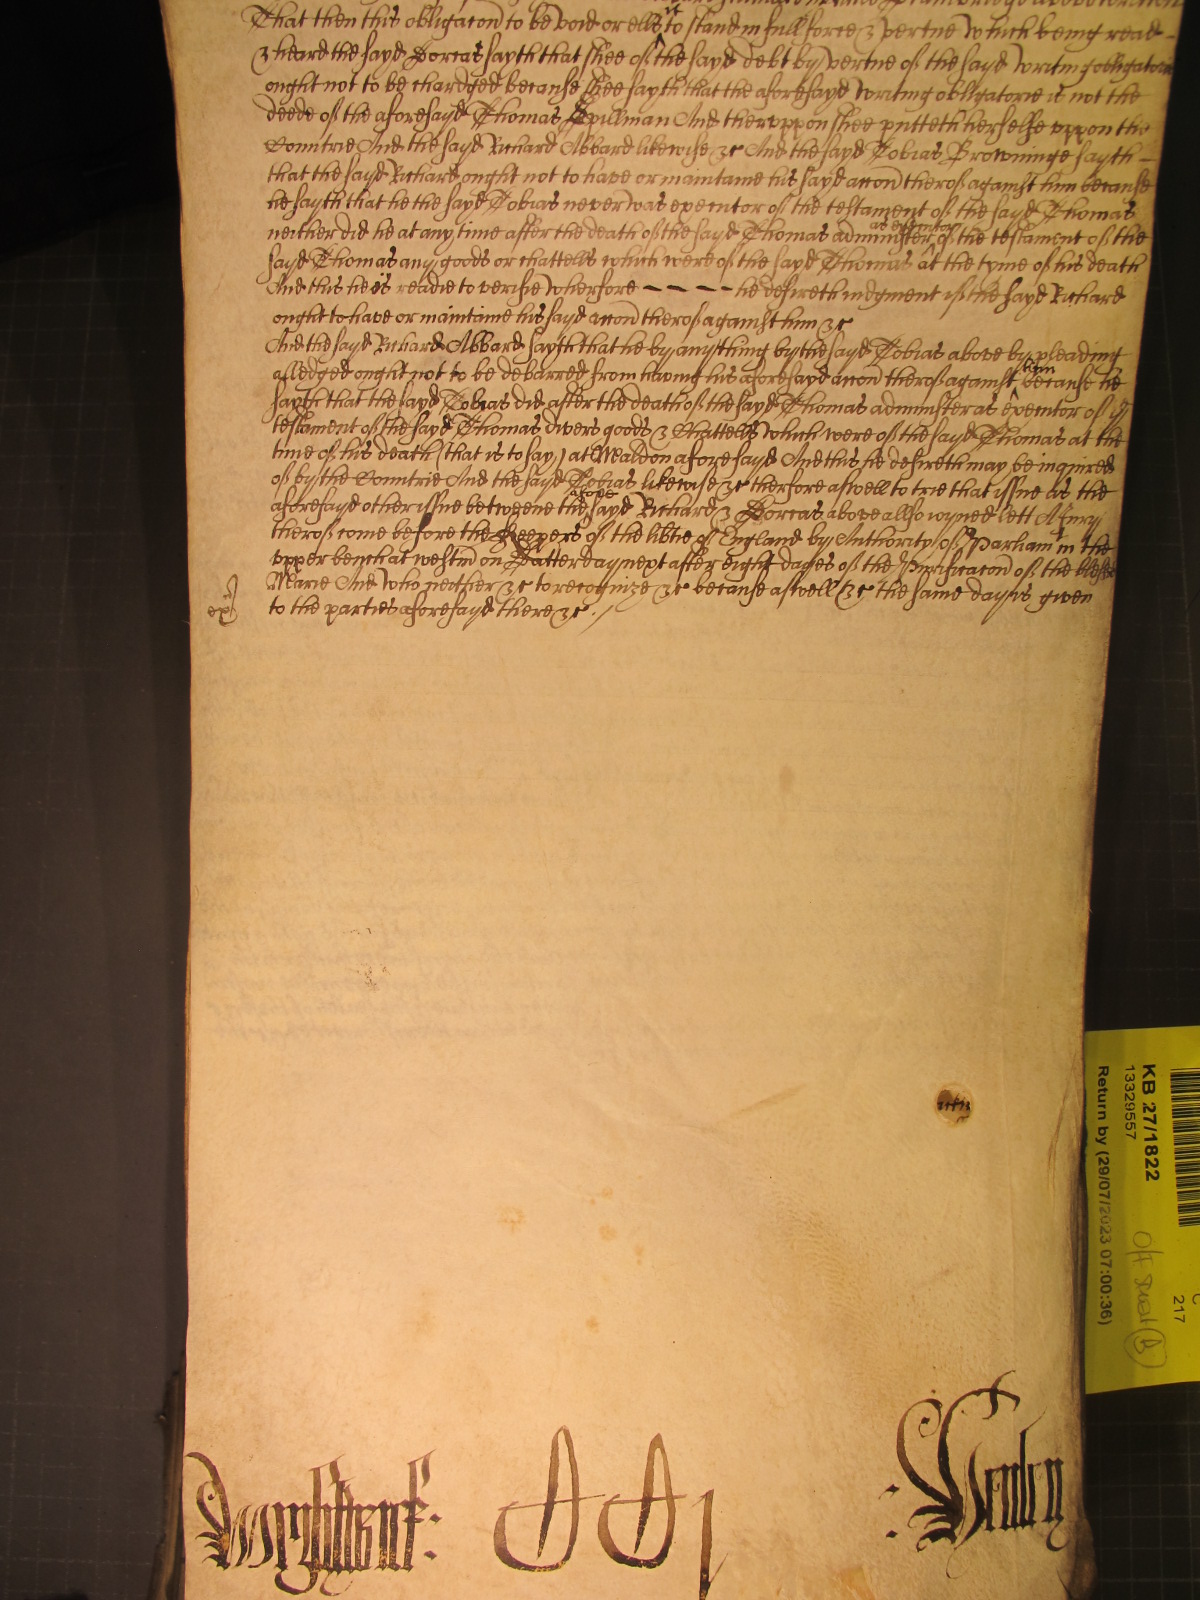 That then this obligacon to be void or ells &c to stand in full force & vertue Which being read
& heard the sayd Dorcas sayth that shee of the sayd debt by vertue of the sayd writing obligatorie
ought not to be chardged because shee sayth that the aforesayd writing obligatorie is not the
deede of the aforesayd Thomas Spillman And theruppon shee putteth herselfe uppon the
Countrie And the sayd Richard Abbard likewise &c And the sayd Tobias Browninge sayth
that the sayd Richard ought not to have or maintaine his sayd accon therof against him because
he sayth that he the sayd Tobias never was executor of the testament of the sayd Thomas
neither did he at any time after the death of the sayd Thomas administer as executor of the testament of the
sayd Thomas any goods or chattells which were of the sayd Thomas at the tyme of his death
And this he is readie to verifie wherfore - - - - he desireth iudgment if the sayd Richard
ought to have or maintaine his sayd accon therof against him &c
And the sayd Richard Abbard sayth that he by any thing by the sayd Tobias above by pleading
alledged ought not to be debarred from having his aforesayd accon therof against him because he
sayth that the sayd Tobias did after the death of the sayd Thomas administer as executor of ye
testament of the sayd Thomas divers goods & Chattells which were of the sayd Thomas at the
time of his death (that is to say) at Maldon aforesayd And this he desireth may be inquired
of by the Countrie And the sayd Tobias likewise &c therfore aswell to trie that issue as the
aforesayd other issue betweene the afore sayd Richard & Dorcas above allso ioyned lett A Iury
therof come before the Keepers of the libtie of England by Authority of Parliamt in the
upper bench at westm on Satterday next after eight dayes of the Purificacon of the blessed
Marie And who neither &c to recognize &c because aswell &c the same day is given
to the parties aforesayd there &c
exr
KB 27/1822
13329557
Return by (29/07/2023 07:00:36)
217
Wryghtwik:
:Henley